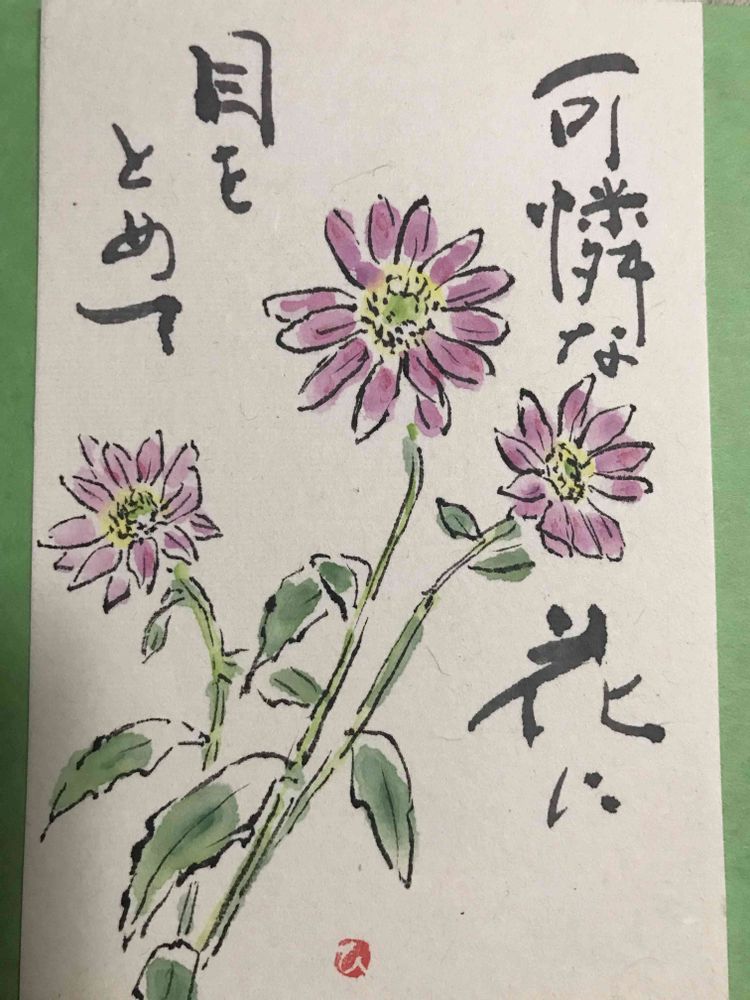 可憐な
花に
目を
とめて
ひ